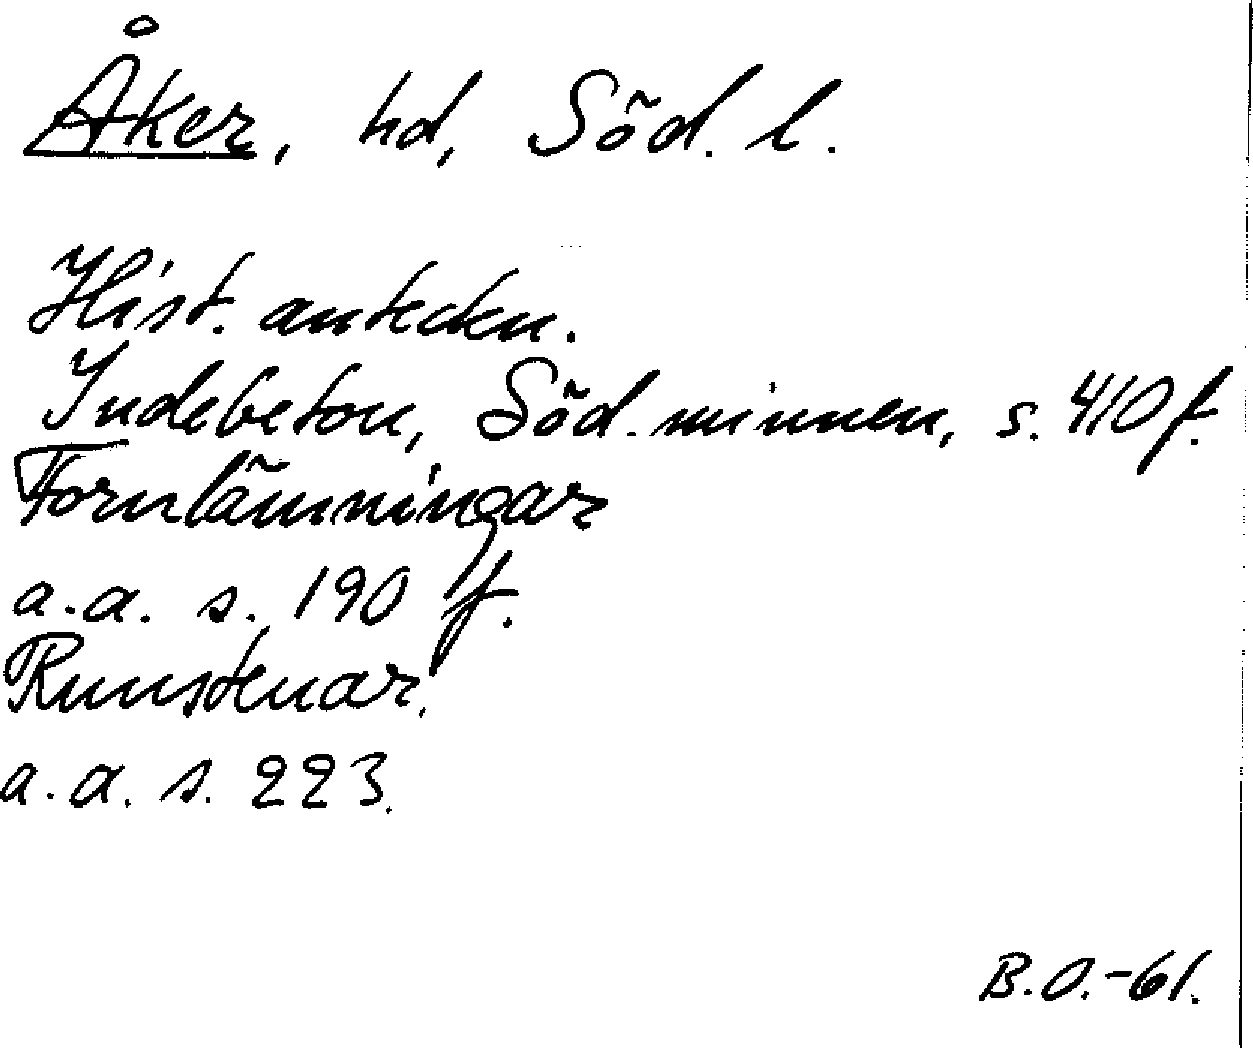 Åker, hd, Söd. l.
Hist. anteckn.
Indebetou, Söd. minnen, s. 410 f.
Fornlämningar
a.a. s. 190 f.
Runstenar.
a.a. s. 223.
B.O.-61.